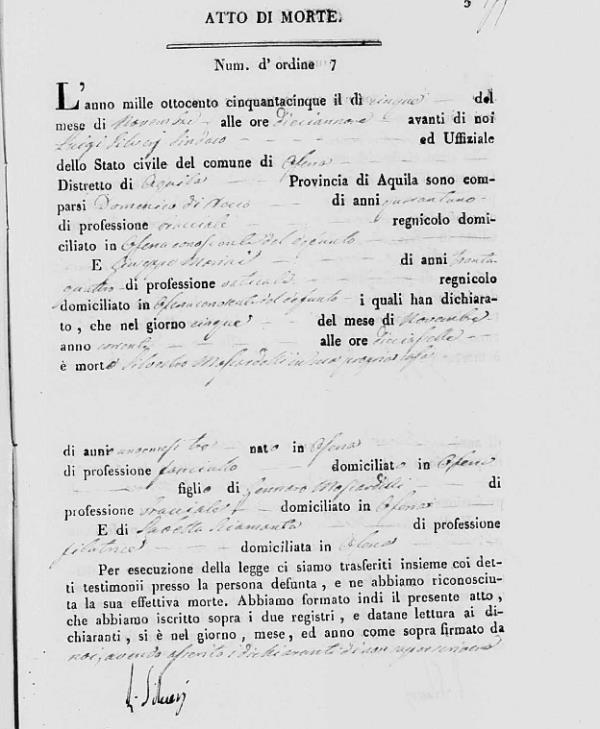 ATTO DI MORTE.
Num. d' ordine 7
L'anno mille ottocento cinquantacinque il dì cinque del
mese di Novembre alle ore diciannove avanti di noi
Luigi Silverj Sindaco ed Uffiziale
dello Stato civile del comune di Ofena
Distretto di Aquila Provincia di Aquila sono com-
parsi Domenico di di anni
di professione bracciale regnicolo domi-
ciliato in Ofena conoscente del defunto
E Giuseppe di anni trenta
quattro di professione regnicolo
domiciliato in Ofena conoscente del defunto i quali han dichiara-
to, che nel giorno cinque del mese di Novembre
anno corrente alle ore diciassette
è morto Silvestro Moscardelli in sua propria casa
di anni nato in Ofena
di professione fanciullo domiciliato in Ofena
figlio di Gennaro Moscardelli di
professione bracciale domiciliato in Ofena
E di di professione
filatrice domiciliata in Ofena
Per esecuzione della legge ci siamo trasferiti insieme coi det-
ti testimonii presso la persona defunta, e ne abbiamo riconosciu-
ta la sua effettiva morte. Abbiamo formato indi il presente atto,
che abbiamo iscritto sopra i due registri, e datane lettura ai di-
chiaranti, si è nel giorno, mese, ed anno come sopra firmato da
noi, avendo asserito i dichiaranti di non saper scrivere
L. Silverj